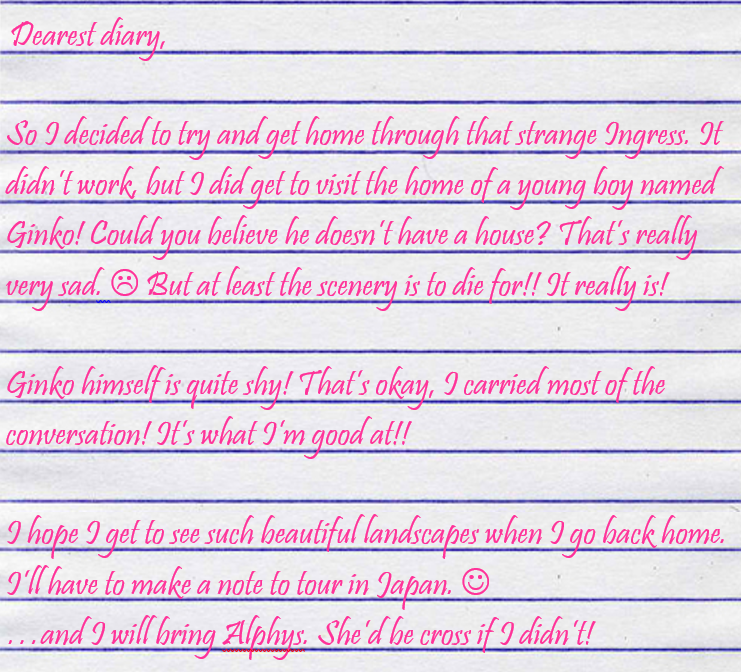 Dearest diary,
So I decided to try and get home through that strange Ingress. It
didn't work, but I did get to visit the home of a young boy named
Ginko! Could you believe he doesn't have a house? That's really
very sad. ☹ But at least the scenery is to die for!! It really is!
Ginko himself is quite shy! That's okay, I carried most of the
conversation! It's what I'm good at!!
I hope I get to see such beautiful landscapes when I go back home.
I'll have to make a note to tour in Japan. ☺
...and I will bring Alphys. She'd be cross if I didn't!